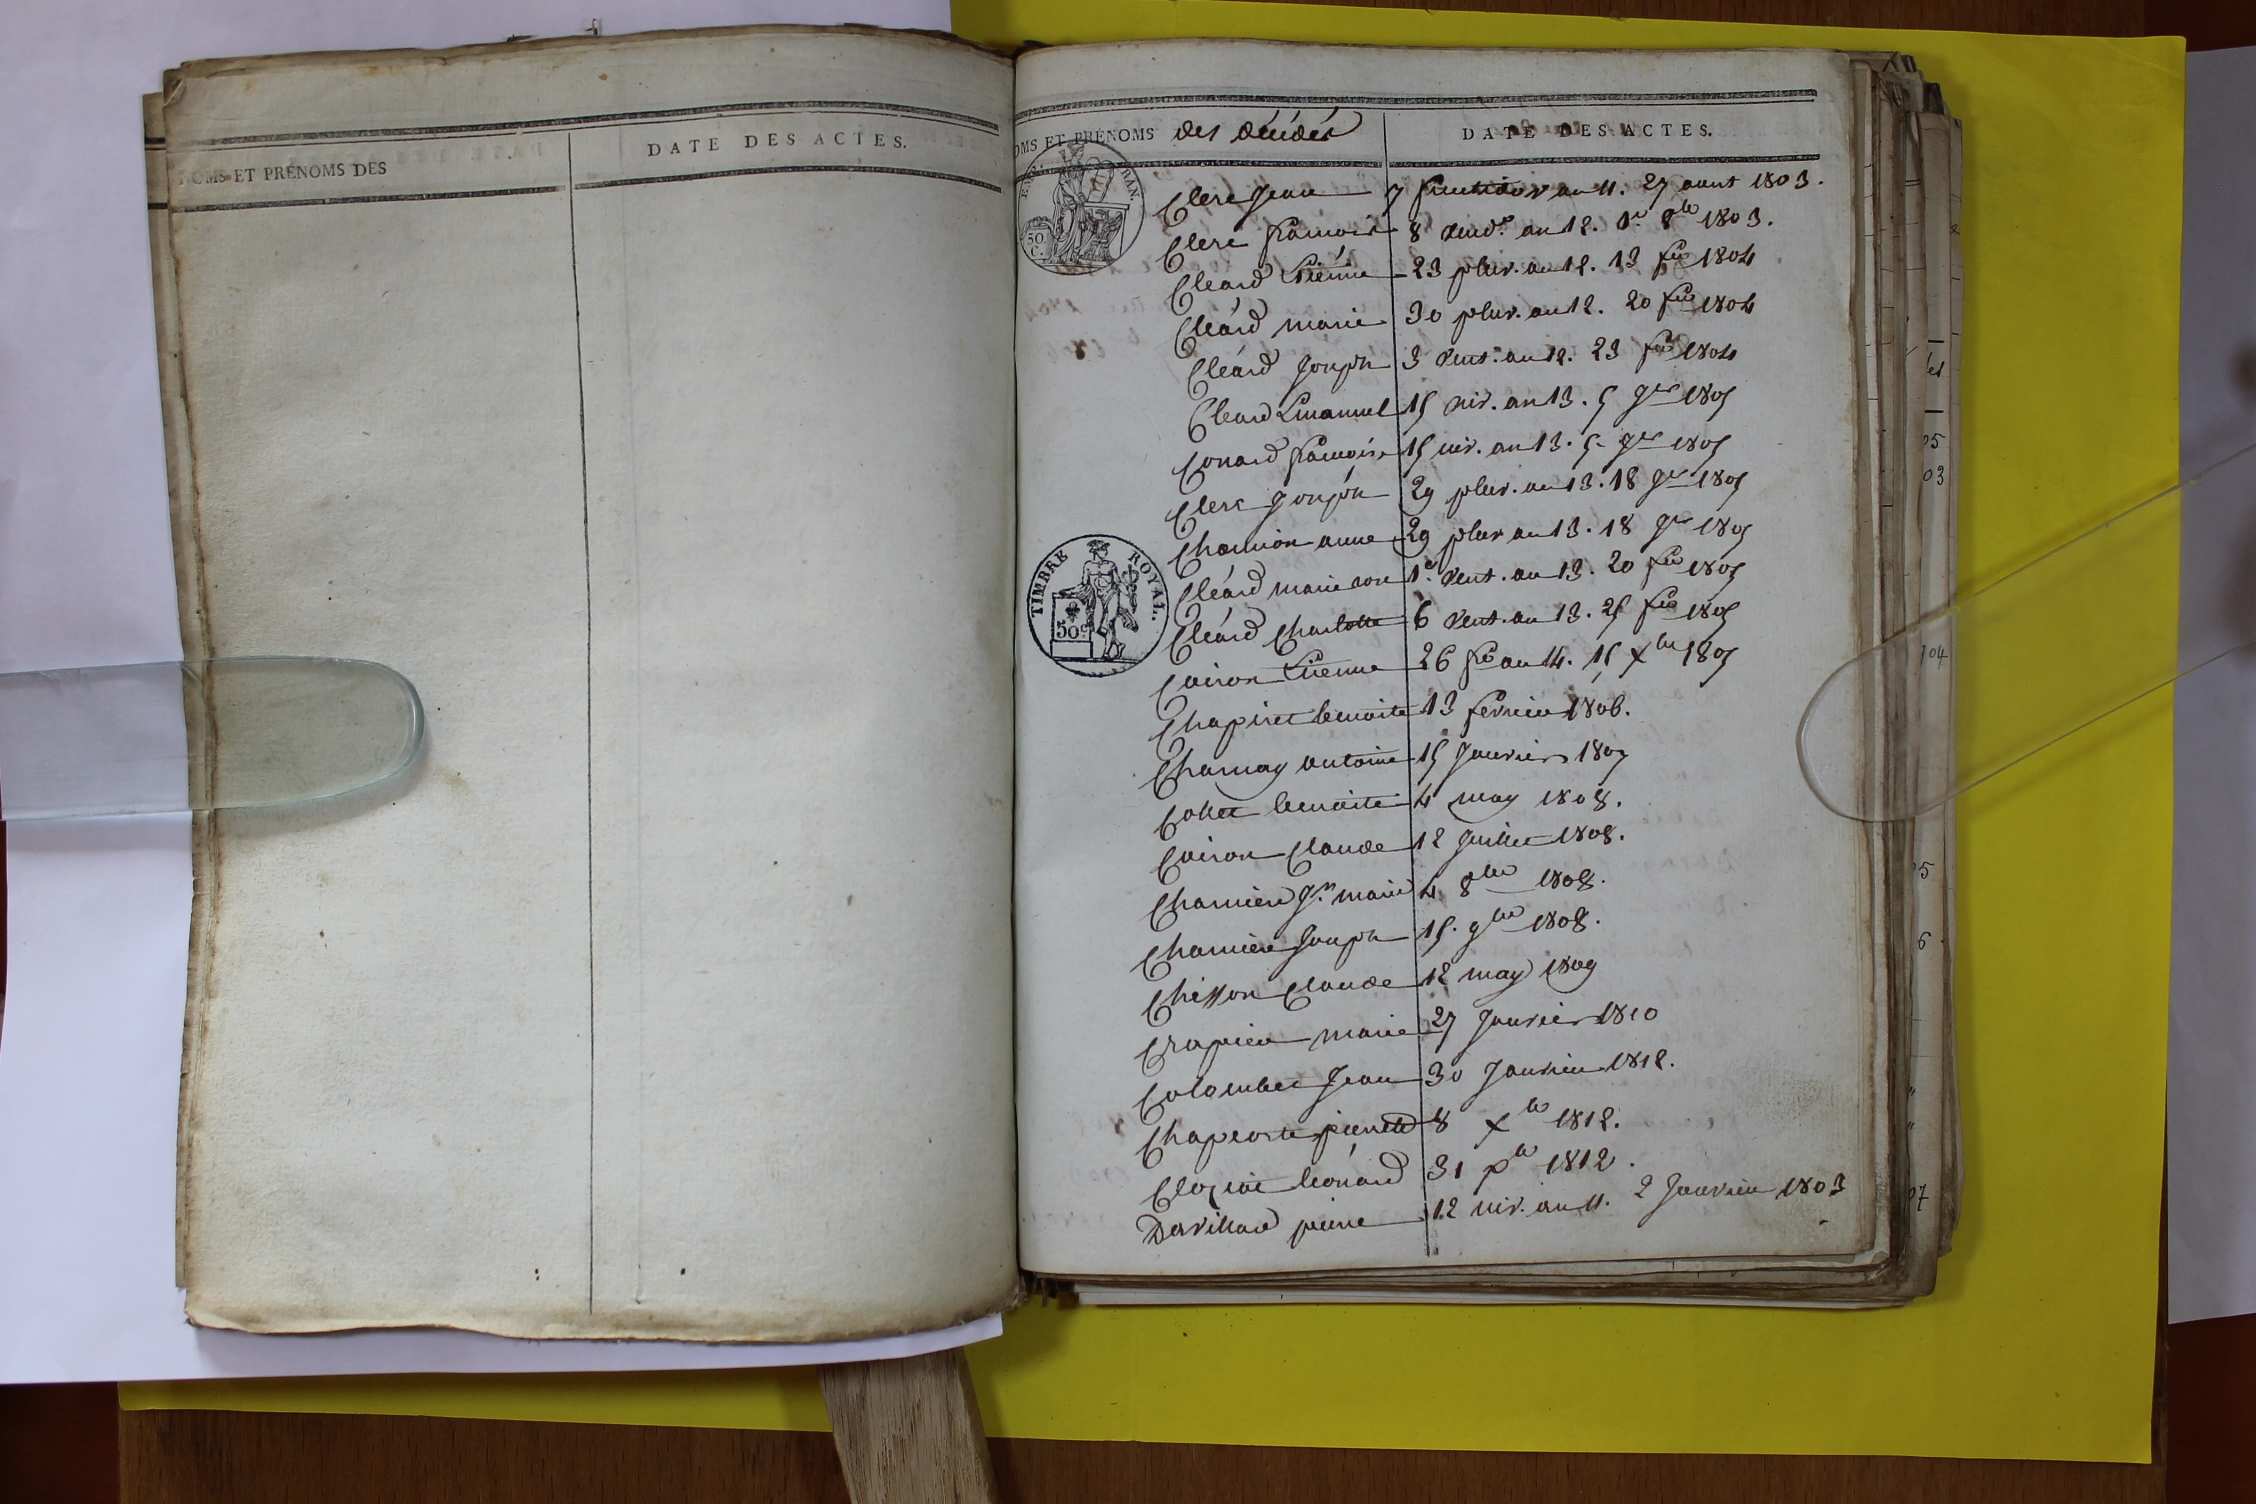 NOMS ET PRÉNOMS DES
DATE DES ACTES.
NOMS ET PRÉNOMS des décédés
DATE DES ACTES.
FRAN.
50 C.
TIMBRE ROYAL.
50 c
Clerc Jean 7 fructidor an 11. 25 aout 1803.
Clerc francois 8 vend.e an 12. 1.er 8bre 1803.
Cleard Etienne 23 pluv. an 12. 13 fer 1804
Cléard marie 30 pluv. an 12. 20 fer 1804
Cléard Joseph 3 vent. an 12. 23 fer 1804
Cleard Emanuel 15 niv. an 13. 5 Jer 1805
Conard francoise 15 niv. an 13. 5 Jer 1805
Clerc Joseph 29 pluv. an 13. 18 Jer 1805
anne 29 pluv an 13. 18 Jer 1805
Cléard marie 1.er vent. an 13. 20 fer 1805
Cléard Charlotte 6 vent. an 13. 25 fer 1805
Coiron Etienne 26 fre an 14. 15 Xbre 1805
benoite 13 fevrier 1806.
Charnay antoine 15 Janvier 1807
Collet benoite 4 may 1808.
Coiron Claude 12 Juillet 1808.
Jn marie 4 8bre 1808.
Joseph 15. 9bre 1808.
Chisson Claude 12 may 1809
marie 27 Janvier 1810
Colombet Jean 30 Janvier 1812.
pierrette 8 Xbre 1812.
léonard 31 Xbre 1812.
Davillard pierre 12 niv. an 11. 2 Janvier 1803